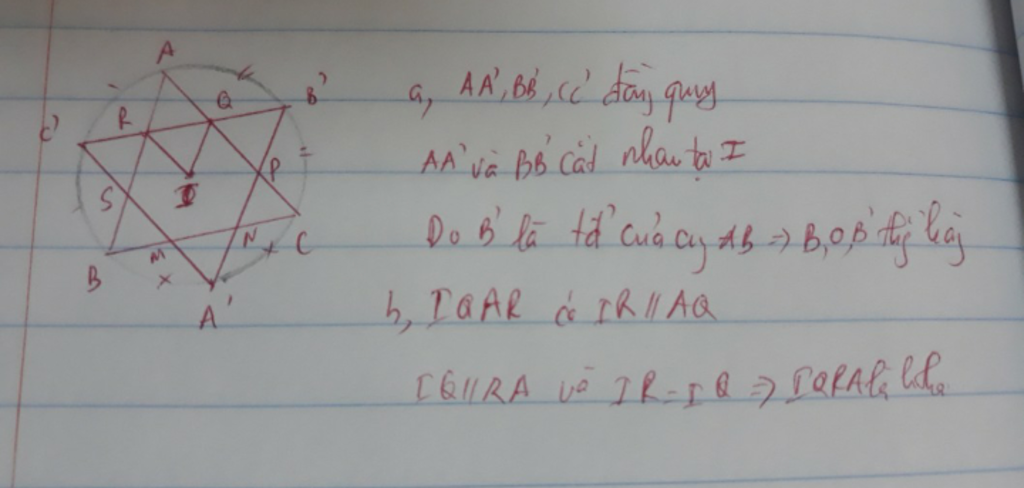 A
B'
Q
R
C'
S
I
P
N
M
B
C
A'
a, AA', BB', CC' đồng quy
AA' và BB' cắt nhau tại I
Do B' là tđ của cg AB => B, O, B' thg hàng
b, IQAR có IR // AQ
IQ // RA và IR = IQ => IQRA là hthoi